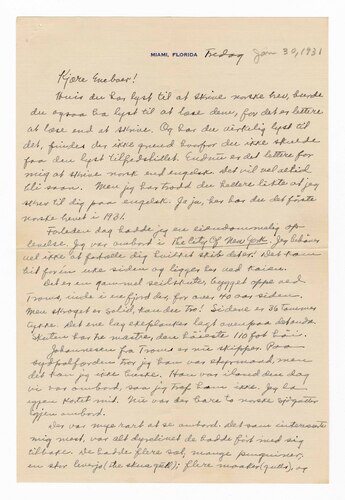 MIAMI, FLORIDA
Fredag Jan 30, 1931
Kjære Eneboer!
Hvis du har lyst til at skrive norske brev, burde
du ogsaa ha lyst til at læse dem, for det er lettere
at læse end at skrive. Og har du virkelig lyst til
det, findes der ikke grund hvorfor du ikke skulde
faa den lyst tilfredsstillet. Endnu er det lettere for
mig at skrive norsk end engelsk. Det vil vel altid
bli saan. Men jeg har trodd du hellere likte at jeg
skrev til dig paa engelsk. Ja ja, her har du det første
norske brevet i 1931.
Forleden dag hadde jeg en eiendommelig op-
levelse. Jeg var ombord i The City Of New York. Jeg behøver
vel ikke at fortælle dig hvilket skib det er. Det kom
hit for en uke siden og ligger her ved kaien.
Det er en gammel seilskute, bygget oppe ved
Tromsø, inde i en fjord der, for over 40 aar siden.
Men skroget er solid, kan du tro! Sidene er 36 tommer
tykke. Det ene lag ekeplanker lagt ovenpaa det andre.
Skuten har tre master, den høieste 110 fot høi.
Johannesen fra Tromsø er nu skipper. Paa
sydpolfærden tror jeg han var styrmand, men
det kan jeg ikke huske. Han var iland den dag
vi var ombord, saa jeg traf ham ikke. Jeg har
igjen kortet mit. Nu var der bare to norske sjøgutter
igjen ombord.
Der var mye rart at se ombord. Det som interesserte
mig mest, var alt dyrelivet de hadde ført med sig
tilbake. De hadde flere sæl, mange penguiner,
en stor (the skua gull); flere maaker (gulls), og